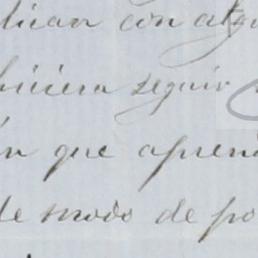 dican con algu
biciera seguir
ón que apren
de modo de po